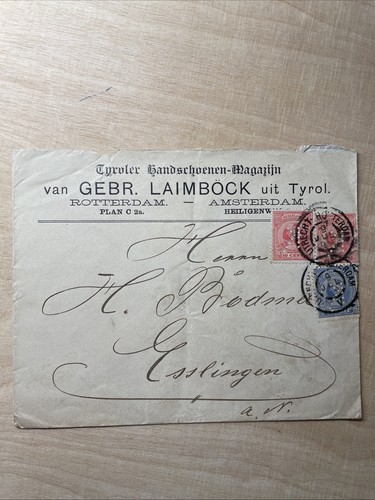 Tyroler Handschoenen-Magazijn
van GEBR. LAIMBÖCK uit Tyrol.
ROTTERDAM. — AMSTERDAM.
PLAN C 2a. HEILIGENW
Herrn
H. Bodme
Esslingen
a. N.